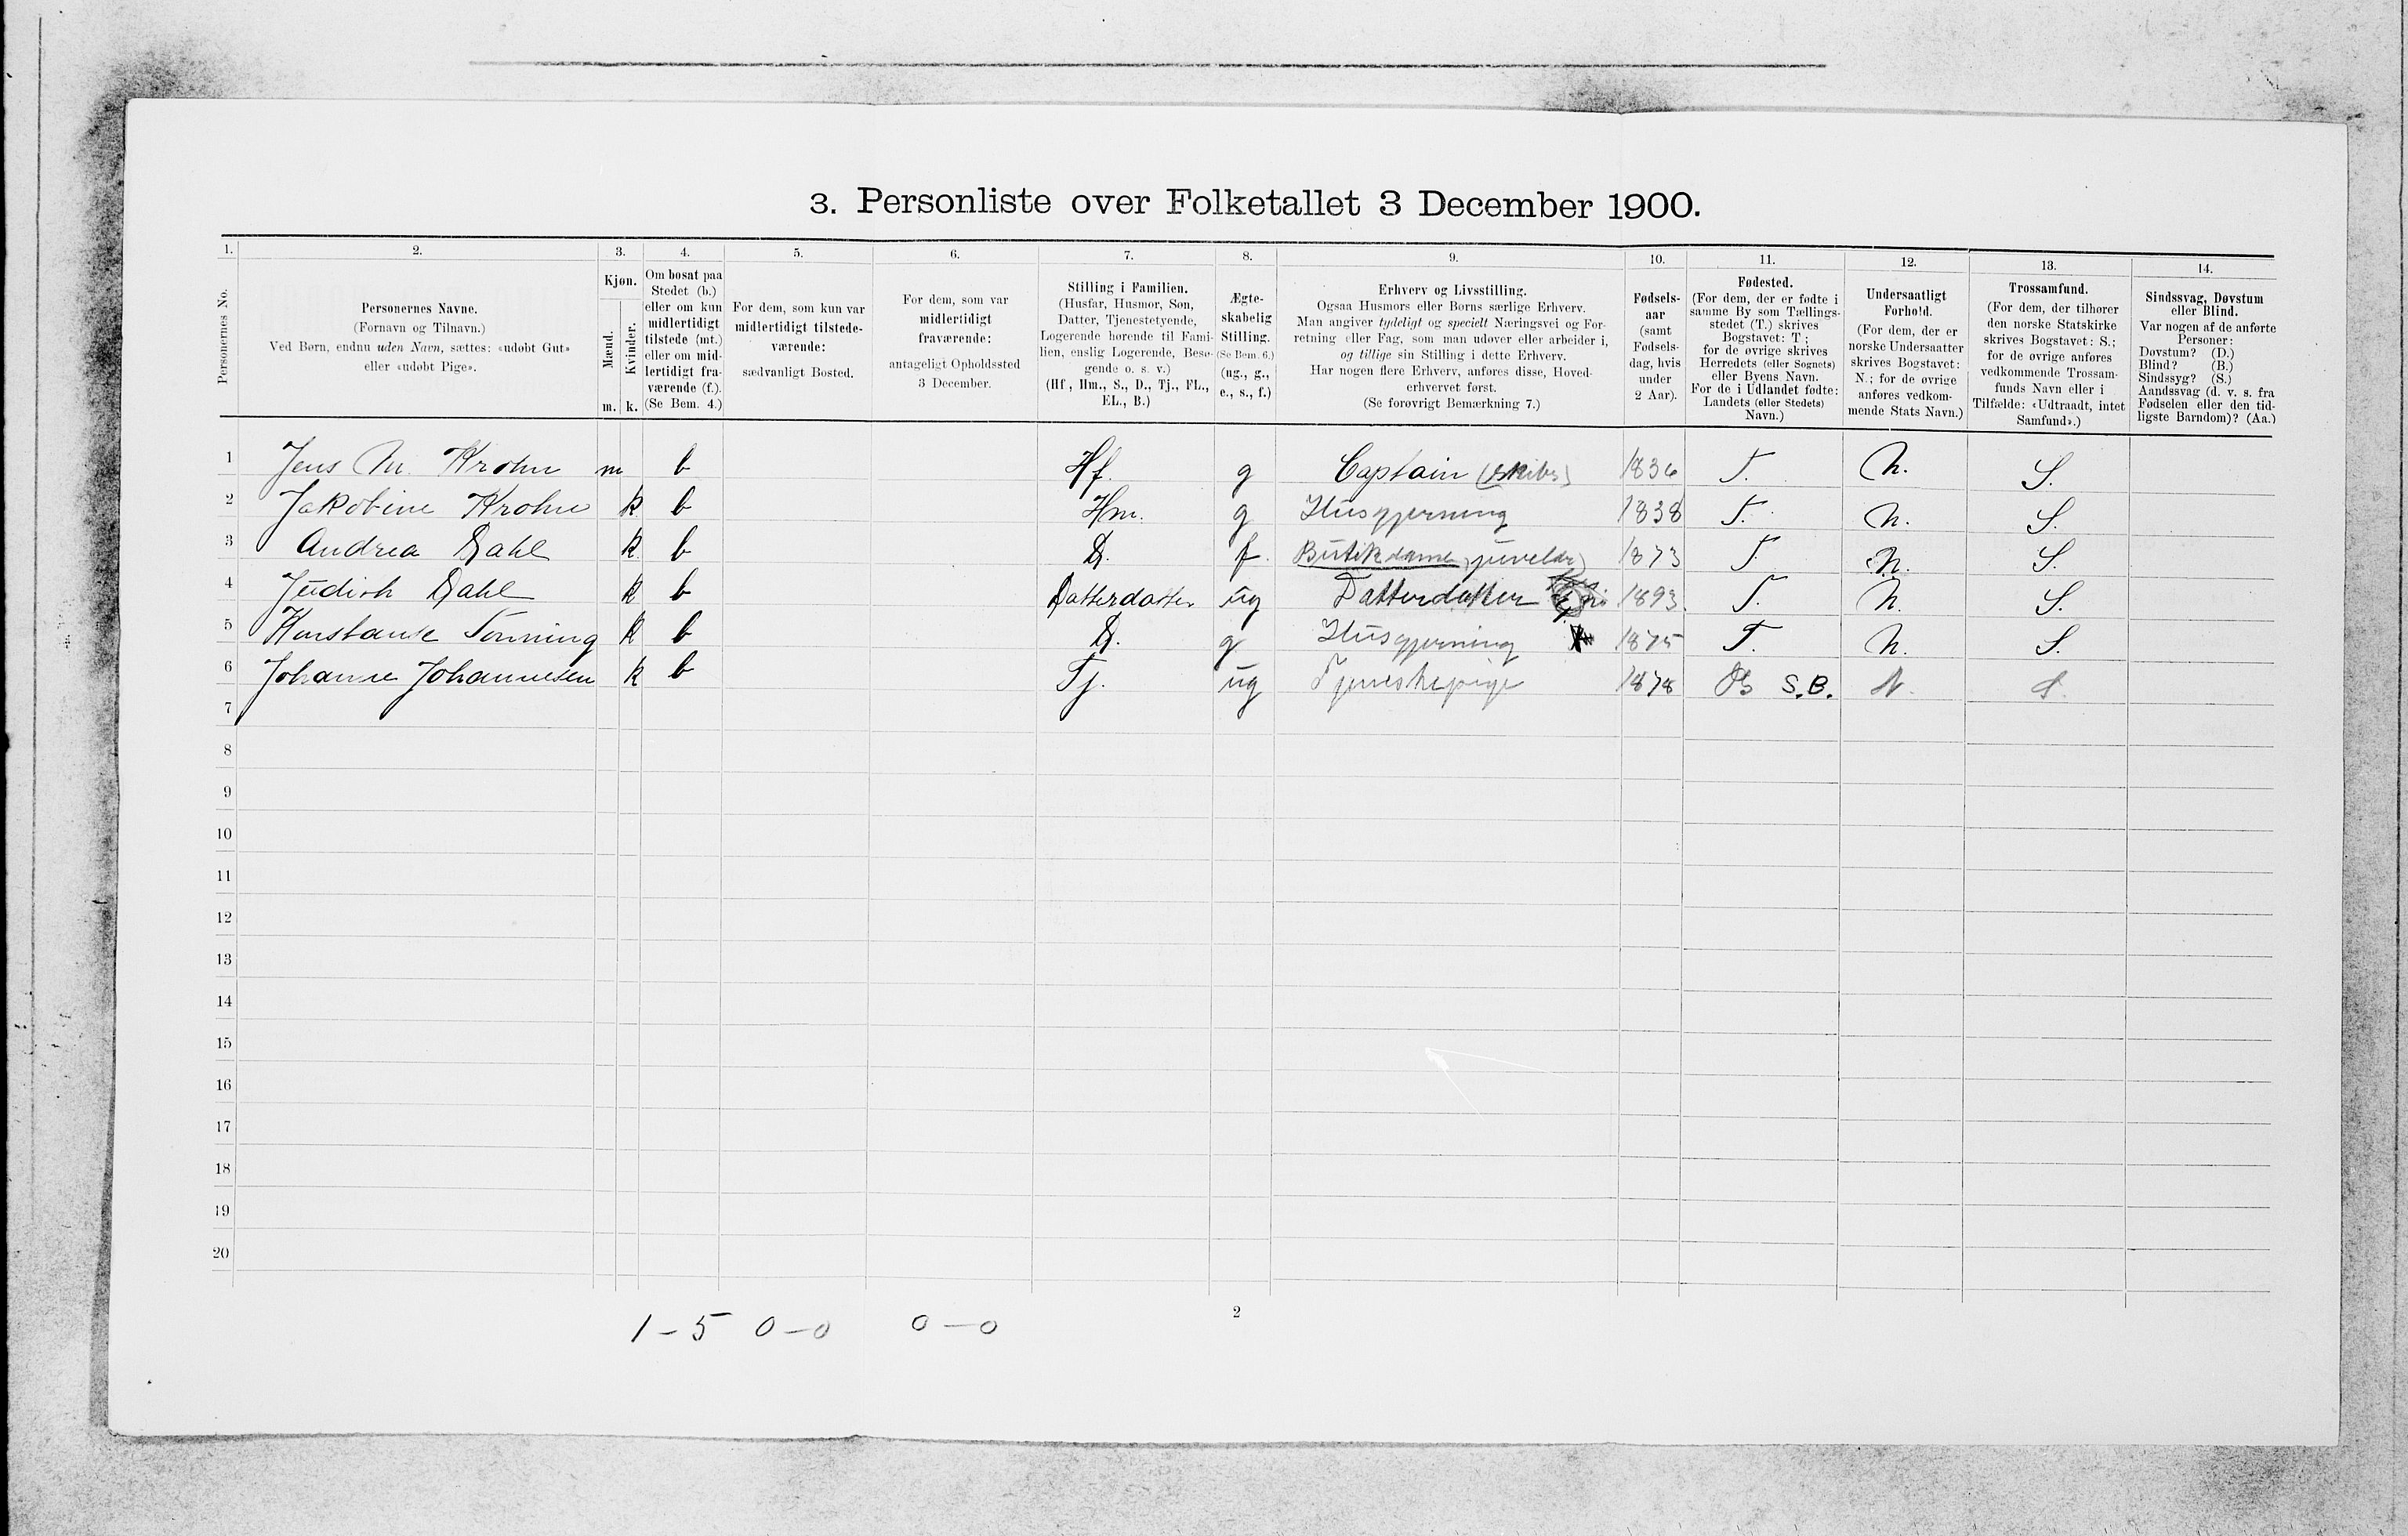 3. Personliste over Folketallet 3 December 1900.
1. 2. 3. 4. 5. 6. 7. 8. 9. 10. 11. 12. 13. 14.
Personernes No.
Personernes Navne.
(Fornavn og Tilnavn.)
Ved Børn, endnu uden Navn, sættes: «udøbt Gut»
eller «udøbt Pige».
Kjøn.
Mænd.
Kvinder.
m. k.
Om bosat paa
Stedet (b.)
eller om kun
midlertidigt
tilstede (mt.)
eller om mid-
lertidigt fra-
værende (f.).
(Se Bem. 4.)
For dem, som kun var
midlertidigt tilstede-
værende:
sædvanligt Bosted.
For dem, som var
midlertidigt
fraværende:
antageligt Opholdssted
3 December.
Stilling i Familien.
(Husfar, Husmor, Søn,
Datter, Tjenestetyende,
Logerende hørende til Fami-
lien, enslig Logerende, Besø-
gende o. s. v.)
(Hf., Hm., S., D., Tj., FL.,
EL., B.)
Ægte-
skabelig
Stilling.
(Se Bem. 6.)
(ug., g.,
e., s., f.)
Erhverv og Livsstilling.
Ogsaa Husmors eller Børns særlige Erhverv.
Man angiver tydeligt og specielt Næringsvei og For-
retning eller Fag, som man udøver eller arbeider i,
og tillige sin Stilling i dette Erhverv.
Har nogen flere Erhverv, anføres disse, Hoved-
erhvervet først.
(Se forøvrigt Bemærkning 7.)
Fødsels-
aar
(samt
Fødsels-
dag, hvis
under
2 Aar).
Fødested.
(For dem, der er fødte i
samme By som Tællings-
stedet (T.) skrives
Bogstavet: T;
for de øvrige skrives
Herredets (eller Sognets)
eller Byens Navn.
For de i Udlandet fødte:
Landets (eller Stedets)
Navn.)
Undersaatligt
Forhold.
(For dem, der er
norske Undersaatter
skrives Bogstavet:
N.; for de øvrige
anføres vedkom-
mende Stats Navn.)
Trossamfund.
(For dem, der tilhører
den norske Statskirke
skrives Bogstavet: S.;
for de øvrige anføres
vedkommende Trossam-
funds Navn eller i
Tilfælde: «Udtraadt, intet
Samfund».)
Sindssvag, Døvstum
eller Blind.
Var nogen af de anførte
Personer:
Døvstum? (D.)
Blind? (B.)
Sindssyg? (S.)
Aandssvag (d. v. s. fra
Fødselen eller den tid-
ligste Barndom)? (Aa.)
1 Jens M. Krohn m b Hf. g Captain (skibs) 1836 T. N. S.
2 Jakobine Krohn k b Hm. g Husgjerning 1838 T. N. S.
3 Andrea Dahl k b D. f. Butikdame, juveler) 1873 T N. S.
4 Judith Dahl k b Datterdatter ug Datterdatter 1893. T. N. S.
5 Konstanse Tønning k b D. g Husgjerning 1875 T. N. S.
6 Johanne Johannesen k b Tj. ug Tjenestepige 1878 S.B. N. S.
7
8
9
10
11
12
13
14
15
16
17
18
19
20
2
1 – 5 0 – 0 0 – 0